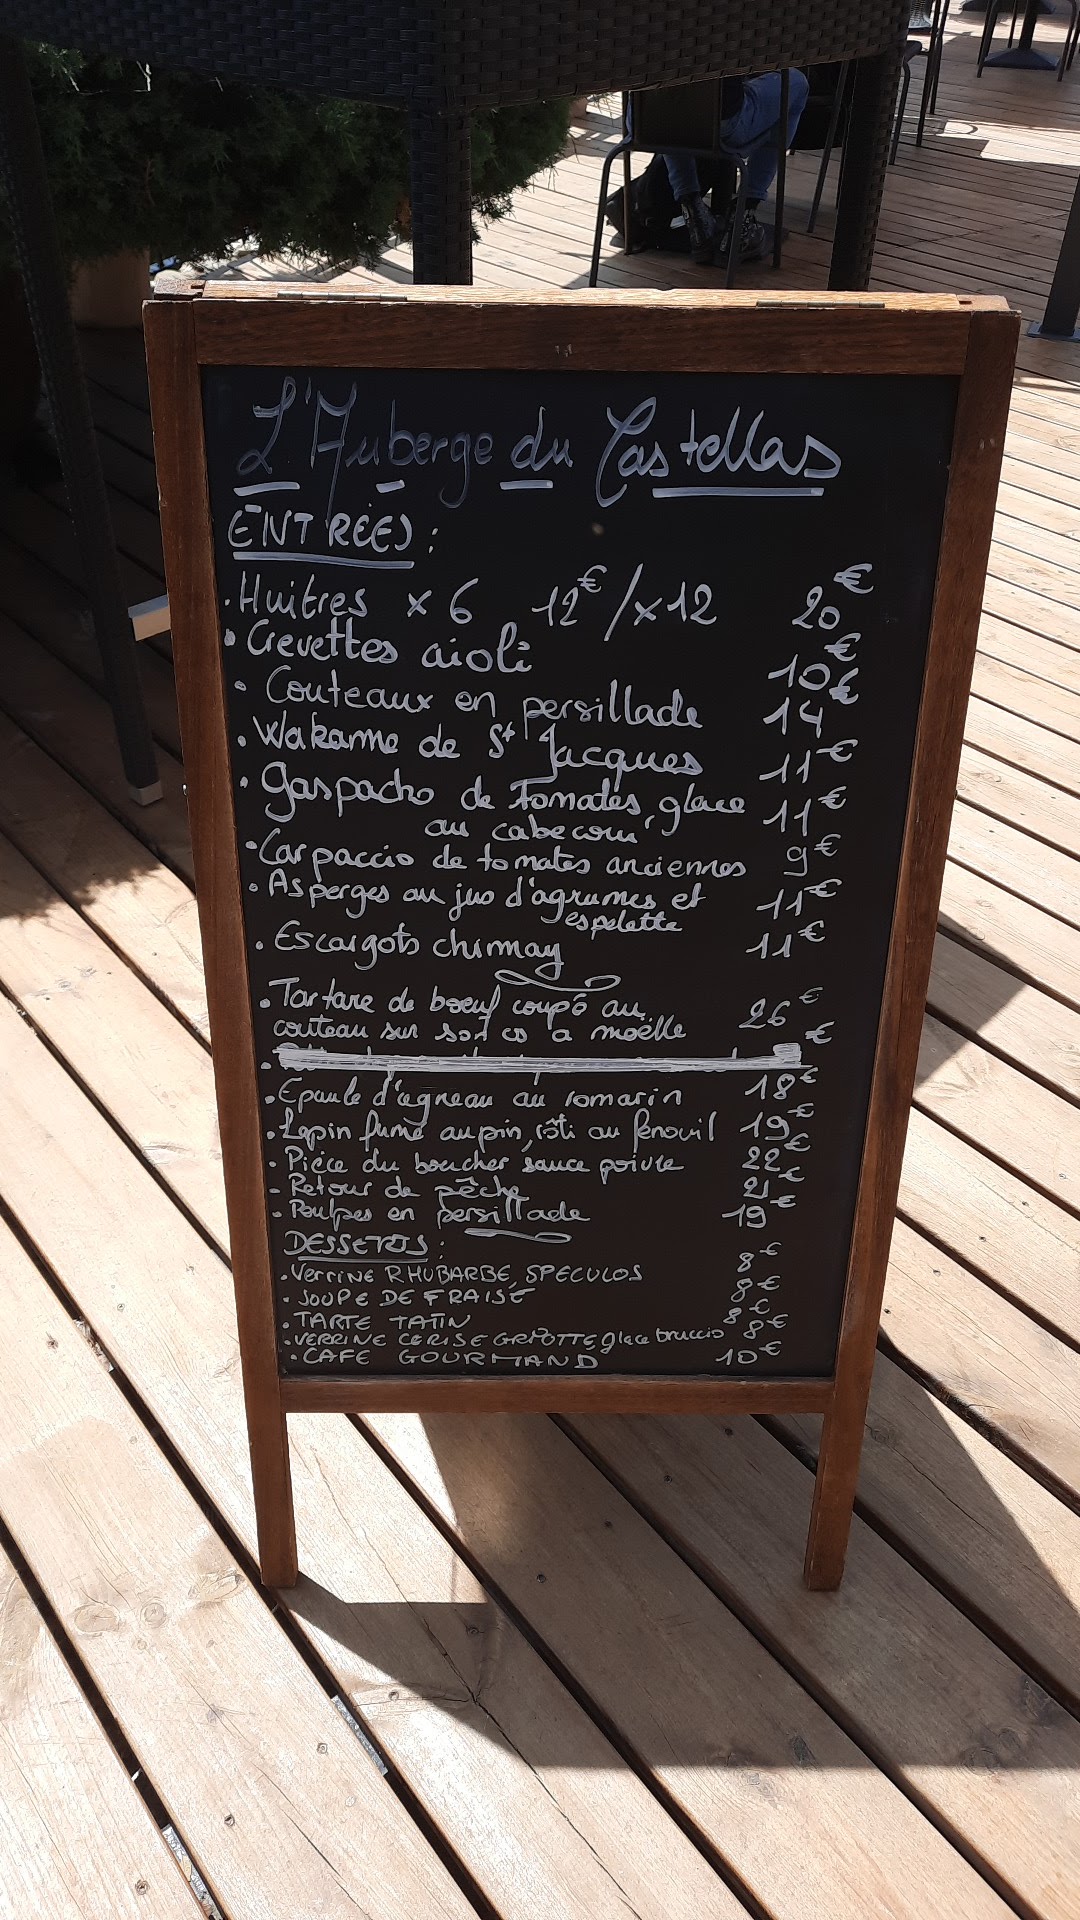 L'Auberge du Castellas
ENTRÉES :
. Huitres x 6 12€ / x12 20€
. Crevettes aïoli 10€
. Couteaux en persillade 14€
. Wakamme de St Jacques 11€
. Gaspacho de Tomates, glace 11€
au cabecou
. Carpaccio de tomates anciennes 9€
. Asperges au jus d'agrumes et 11€
espelette
. Escargots chimay 11€
. Tartare de boeuf coupé au 26€
couteau sur son os a moëlle €
. Epaule d'agneau au romarin 18€
. Lapin fumé au pin, rôti au fenouil 19€
. Pièce du boucher sauce poivre 22€
. Retour de pêche 21€
. Poulpes en persillade 19€
DESSERTS :
. Verrine RHUBARBE, SPECULOS 8€
. SOUPE DE FRAISE 8€
. TARTE TATIN 8€
. VERRINE CERISE GRIOTTE, glace bruccio 8€
. CAFE GOURMAND 10€